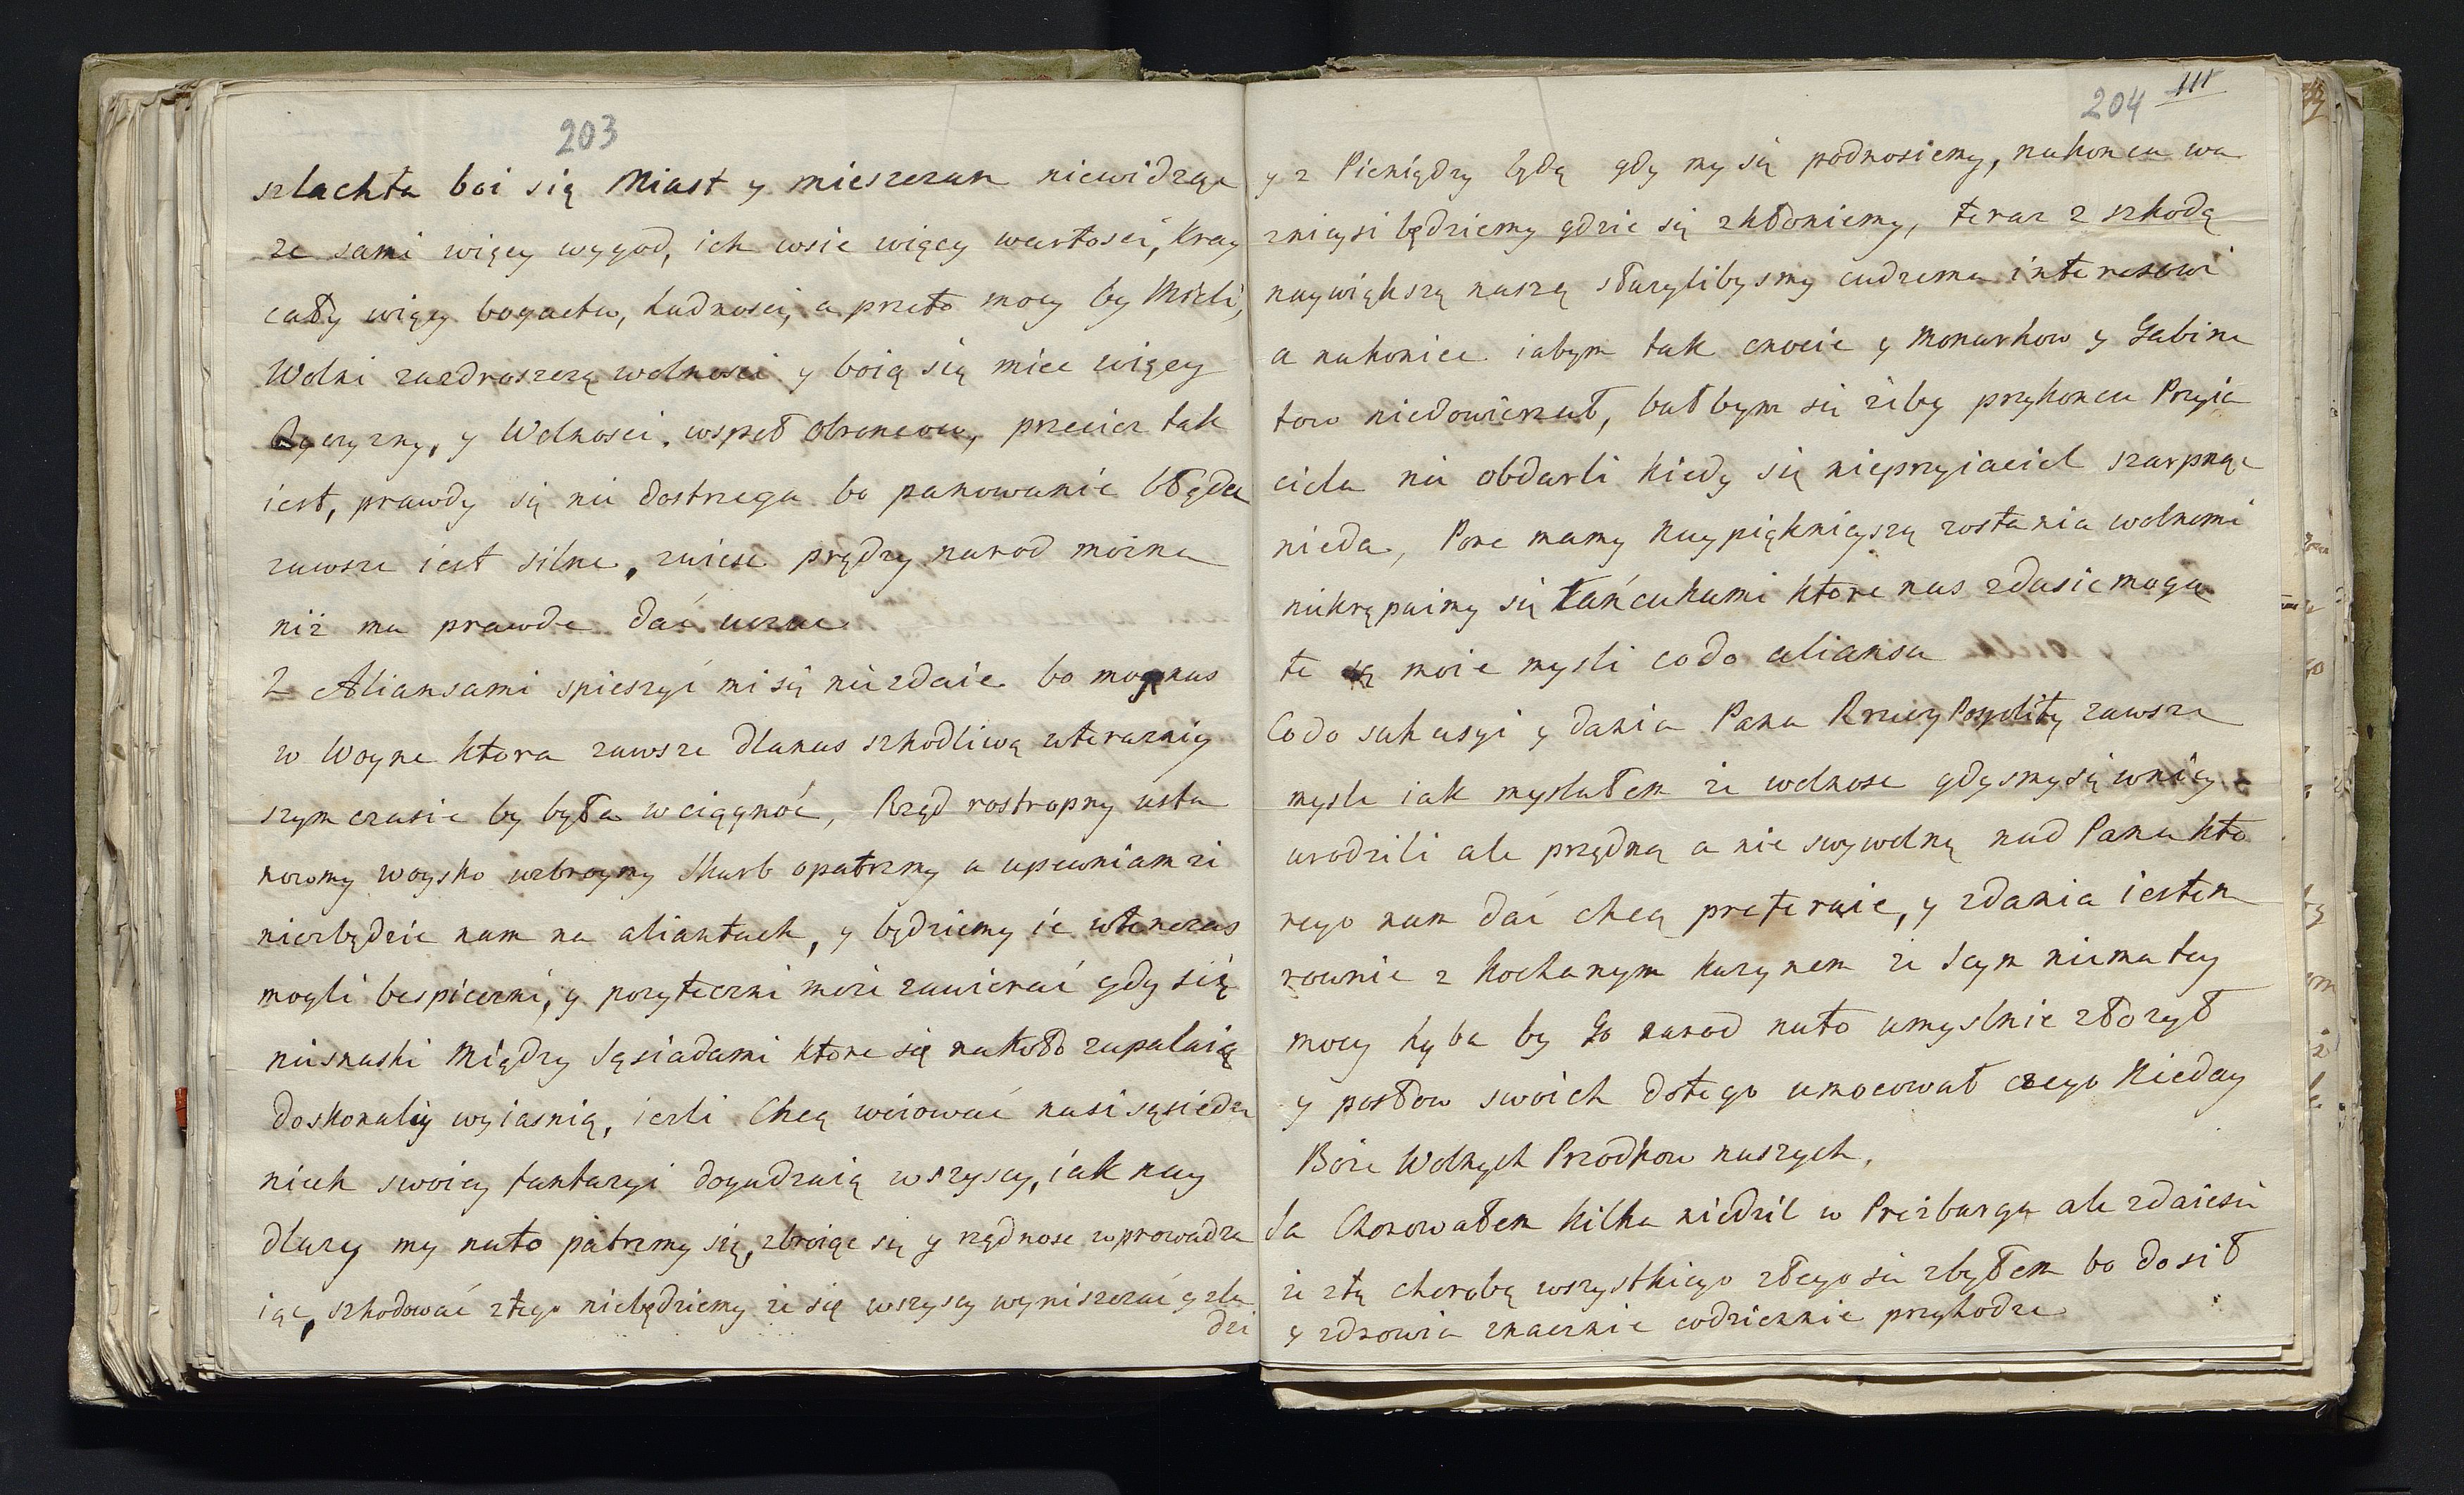 203
szlachta boi się Miast y mieszczan niewidząc
ze sami więcy wygod, ich wsie więcy wartosci, kray
cały więcy bogactw, ludnosci, a przeto mocy by Mieli,
Wolni zazdroszczą wolnosci y boią się miec więcy
Oyczyzny, y Wolnosci, wspoł obroncow, przeciez tak
iest, prawdy się nie dostrzega bo panowanie błędu
zawsze iest silne, zwiesc prędzy narod mozna
niż mu prawde dać uczuc
Z Aliansami spieszyć mi się niezdaie bo mogą nas
w Woyne ktora zawsze dlanas szkodliwą wteraznie
szym czasie by była wciągnoć, Rząd rostropny usta
nowmy woysko uzbroymy Skarb opatrzmy a upewniam zi
niezbędzie nam na aliantach, y będziemy ie wtenczas
mogli bespieczni, y pozyteczni może zawierać gdy się
niesnaski Między Sąsiadami ktore się nakoło zapalaią
doskonaliy wyiasnią, iezli Chcą woiować nasi sąsiedzi
niech swoiey fantazyi dogadzaią wszyscy, iak nay
dluzy my nato patrzmy się, zbroiąc się y rządnosc wprowadza
iąc, szkodować ztego niebędziemy że się wszyscy wyniszczać y zlu
dzi
204 111
y z Pieniędzy będą gdy my się podnosiemy, nakoncu wa
znieysi będziemy gdzie się zkłoniemy, teraz z szkodą
naywiększą naszą służylibysmy cudzemu interesowi
a nakoniec iabym tak cnocie y Monarkow y Gabine
tow niedowierzał, bałbym się żeby przykoncu Przyia
ciela nie obdarli kiedy się nieprzyiaciel szarpnąc
nieda, Pore mamy naypięknieyszą zostania wolnemi
niekrępuimy się Łańcuhami ktore nas zdusic mogą
te są moie mysli codo aliansu
Codo sukcesyi y dania Pana Rzeczy Pospolity zawsze
mysle iak myslałem ze wolnosc gdysmysię wnięy
urodzili ale przędną a nie swywolną nad Pana kto
rego nam dać chcą preferuie, y zdania iestem
rownie z Kochanym Kuzynem ze Seym niema tey
mocy hyba by go narod nato umyslnie złozył
y posłow swoich dotego umocował czego Nieday
Boze Wolnych Przodkow naszych,
Ja Chorowałem kilka niedzil w Prezburgu ale zdaiesie
ze ztą chorobą wszystkiego złego sie zbyłem bo do sił
y zdrowia znacznie codziennie przyhodze